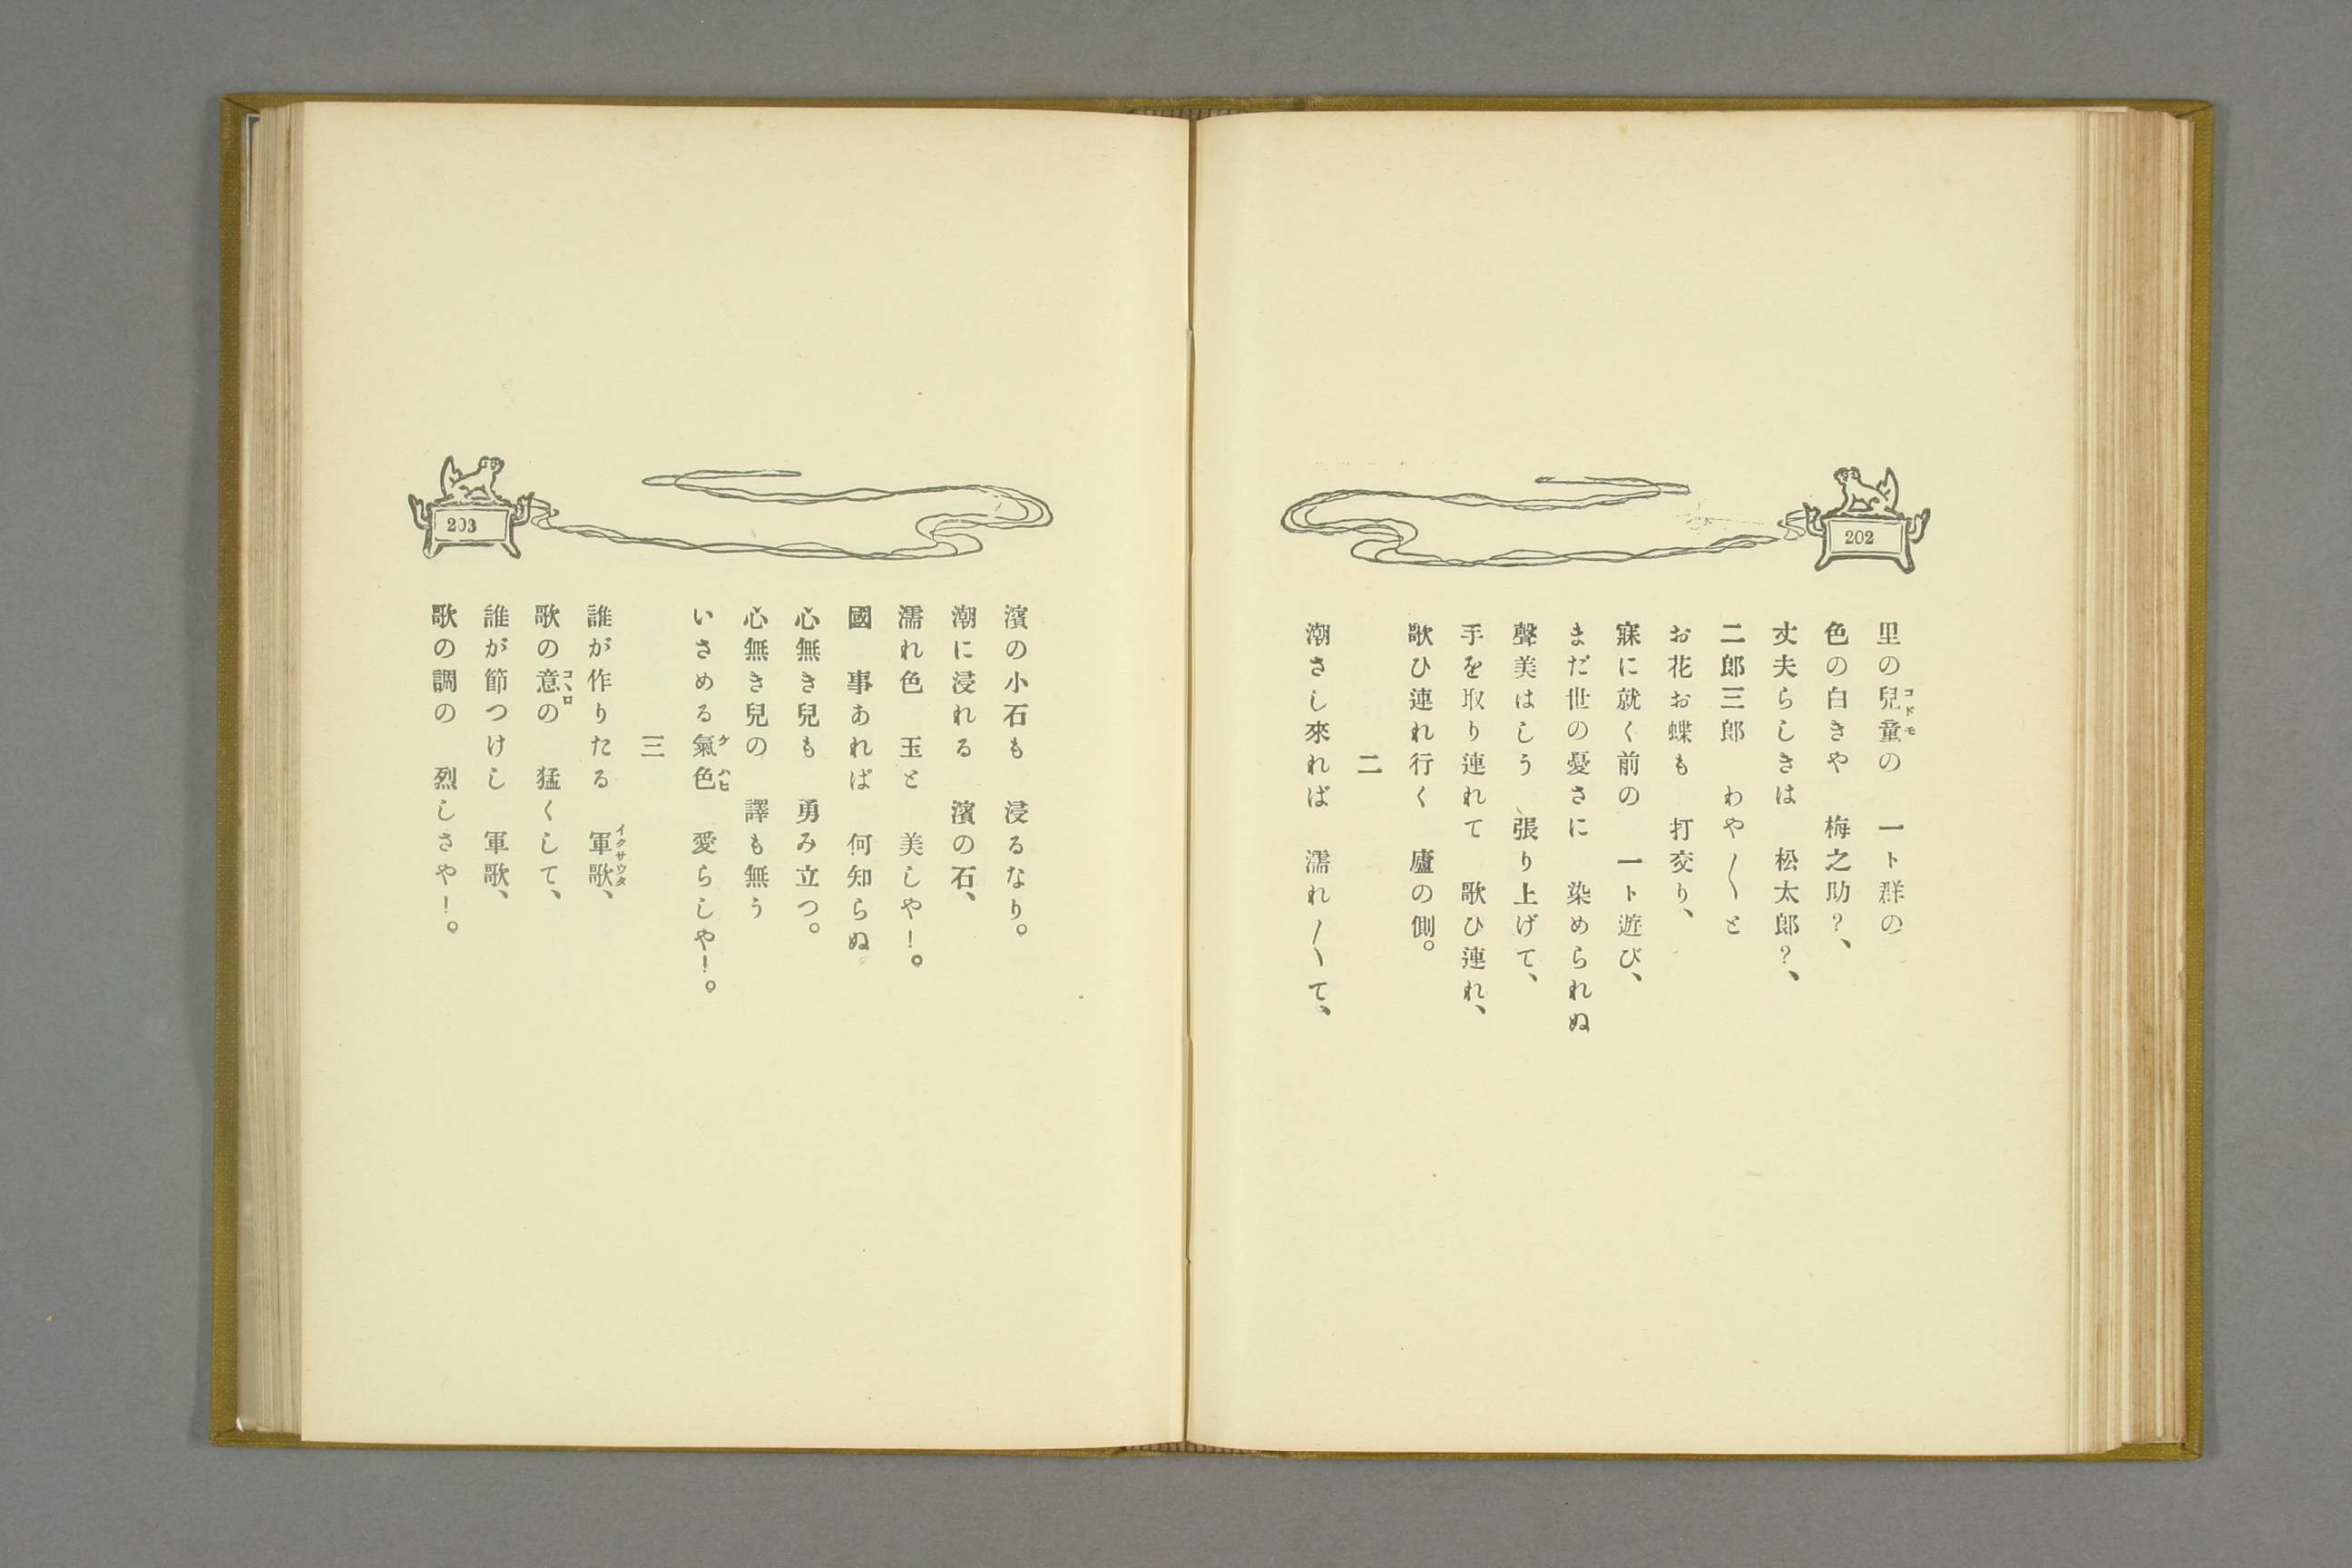 202
里の兒童の　一ト群の
色の白きや　梅之助?、
丈夫らしきは　松太郎?、
二郎三郎　わや〱と
お花お蝶も　打交り、
寐に就く前の　一ト遊び、
まだ世の憂さに　染められぬ
聲美はしう　張り上げて、
手を取り連れて　歌ひ連れ、
歌ひ連れ行く　廬の側。
二
潮さし來れば　濡れ〱て、
203
濱の小石も　浸るなり。
潮に浸れる　濱の石、
濡れ色　玉と　美しや!。
國　事あれば　何知らぬ。
心無き兒も　勇み立つ。
心無き兒の　譯も無う
いさめる氣色　愛らしや!。
三
誰が作りたる　軍歌、
歌の意の　猛くして、
誰が節つけし　軍歌、
歌の調の　烈しさや!。